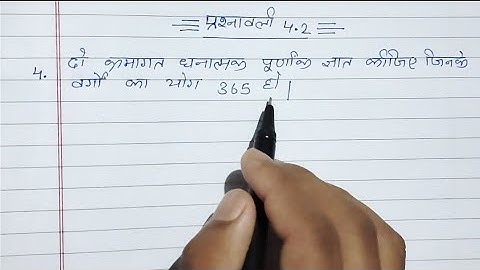 प्रश्नावली 4.2
4. दो क्रमागत धनात्मक पूर्णांक ज्ञात कीजिए जिनके
वर्गों का योग 365 हो।